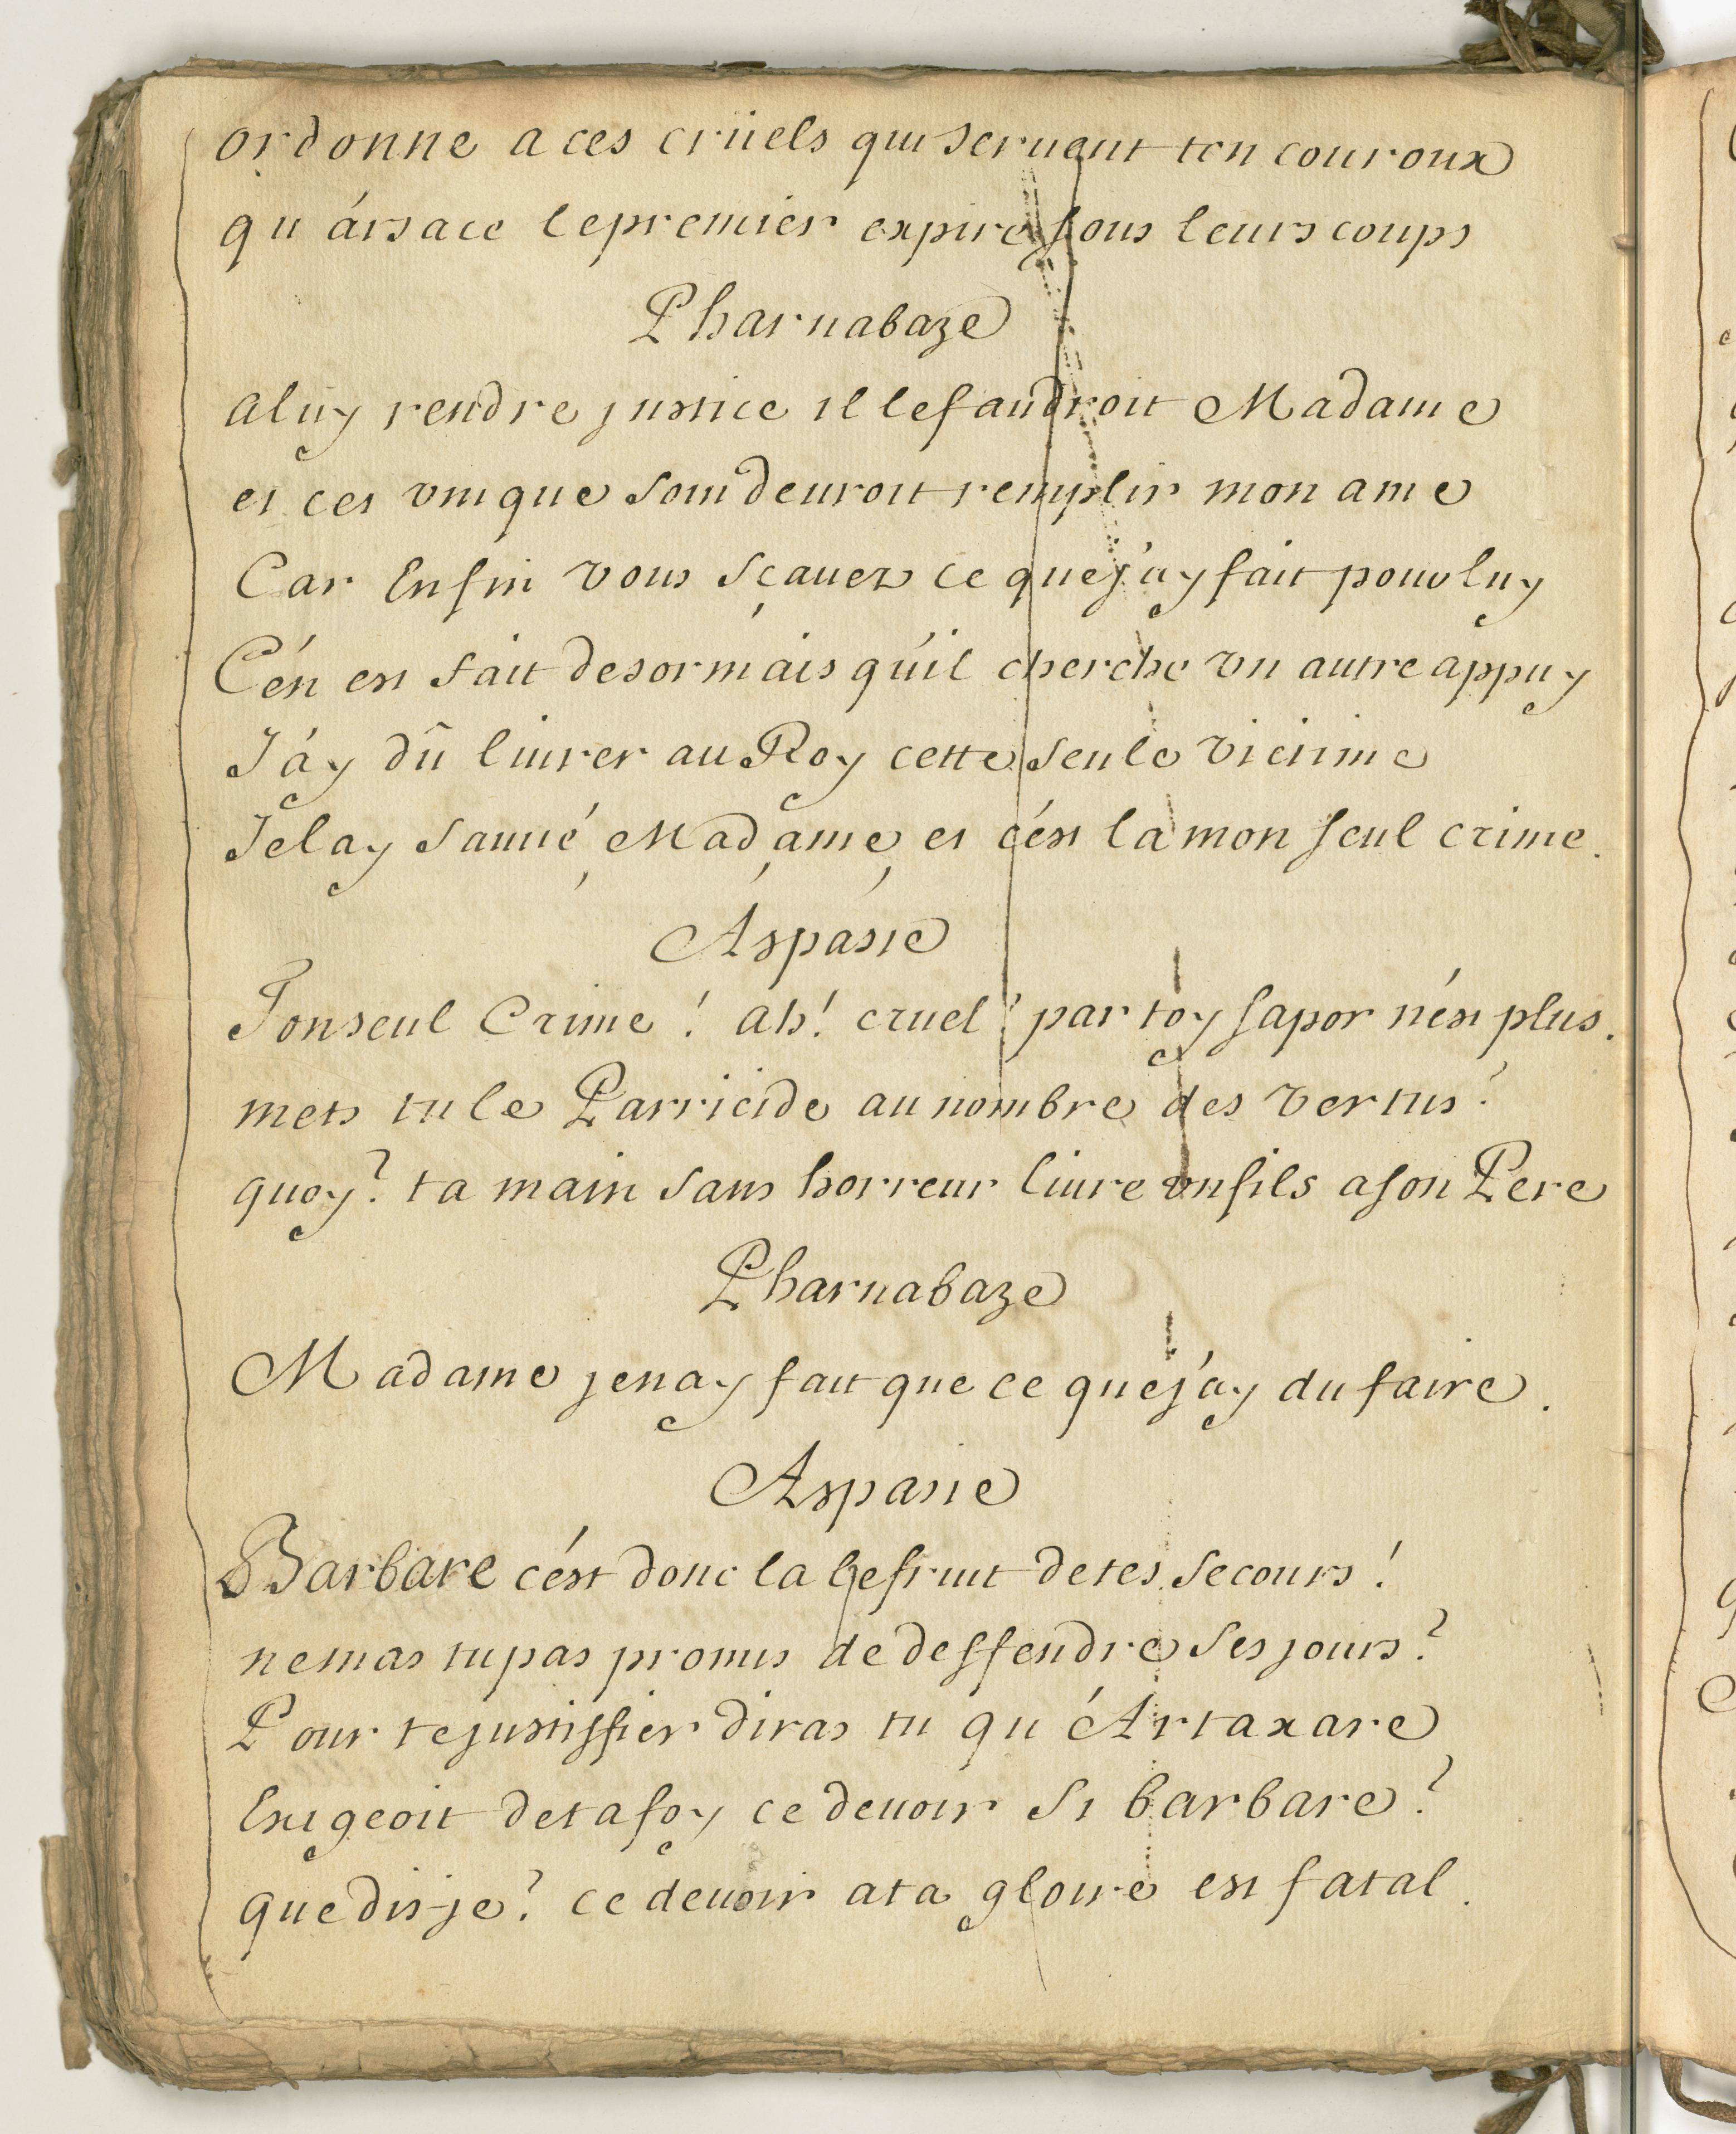 ordonne a ces crüels qui seruent ton couroux
qu ársace le premier expire sous leurs coups
Pharnabaze
a luy rendre justice il le faudroit Madame
et cet vnique soin deuroit remplir mon ame
Car Enfin vous sçauez ce que j'ay fait pour luy
C'én est fait desormais qu'il cherche vn autre appuy
J'áy dû liurer au Roy cette seule victime
Je lay sauué, Madame, et cést la mon seul crime.
Aspasie
Ton seul Crime ! ah ! cruel ! par toy sapor nést plus.
mets tu le Parricide au nombre des vertus ?
quoy ? ta main sans horreur liure vn fils a son Pere
Pharnabaze
Madame je nay fait que ce que j'ay du faire.
Aspasie
Barbare cést donc la le fruit de tes secours !
ne mas tu pas promis de deffendre ses jours ?
Pour te justiffier diras tu qu Artaxare
Exigeoit de ta foy ce deuoir si barbare ?
que dis-je ? ce deuoir a ta gloire est fatal.